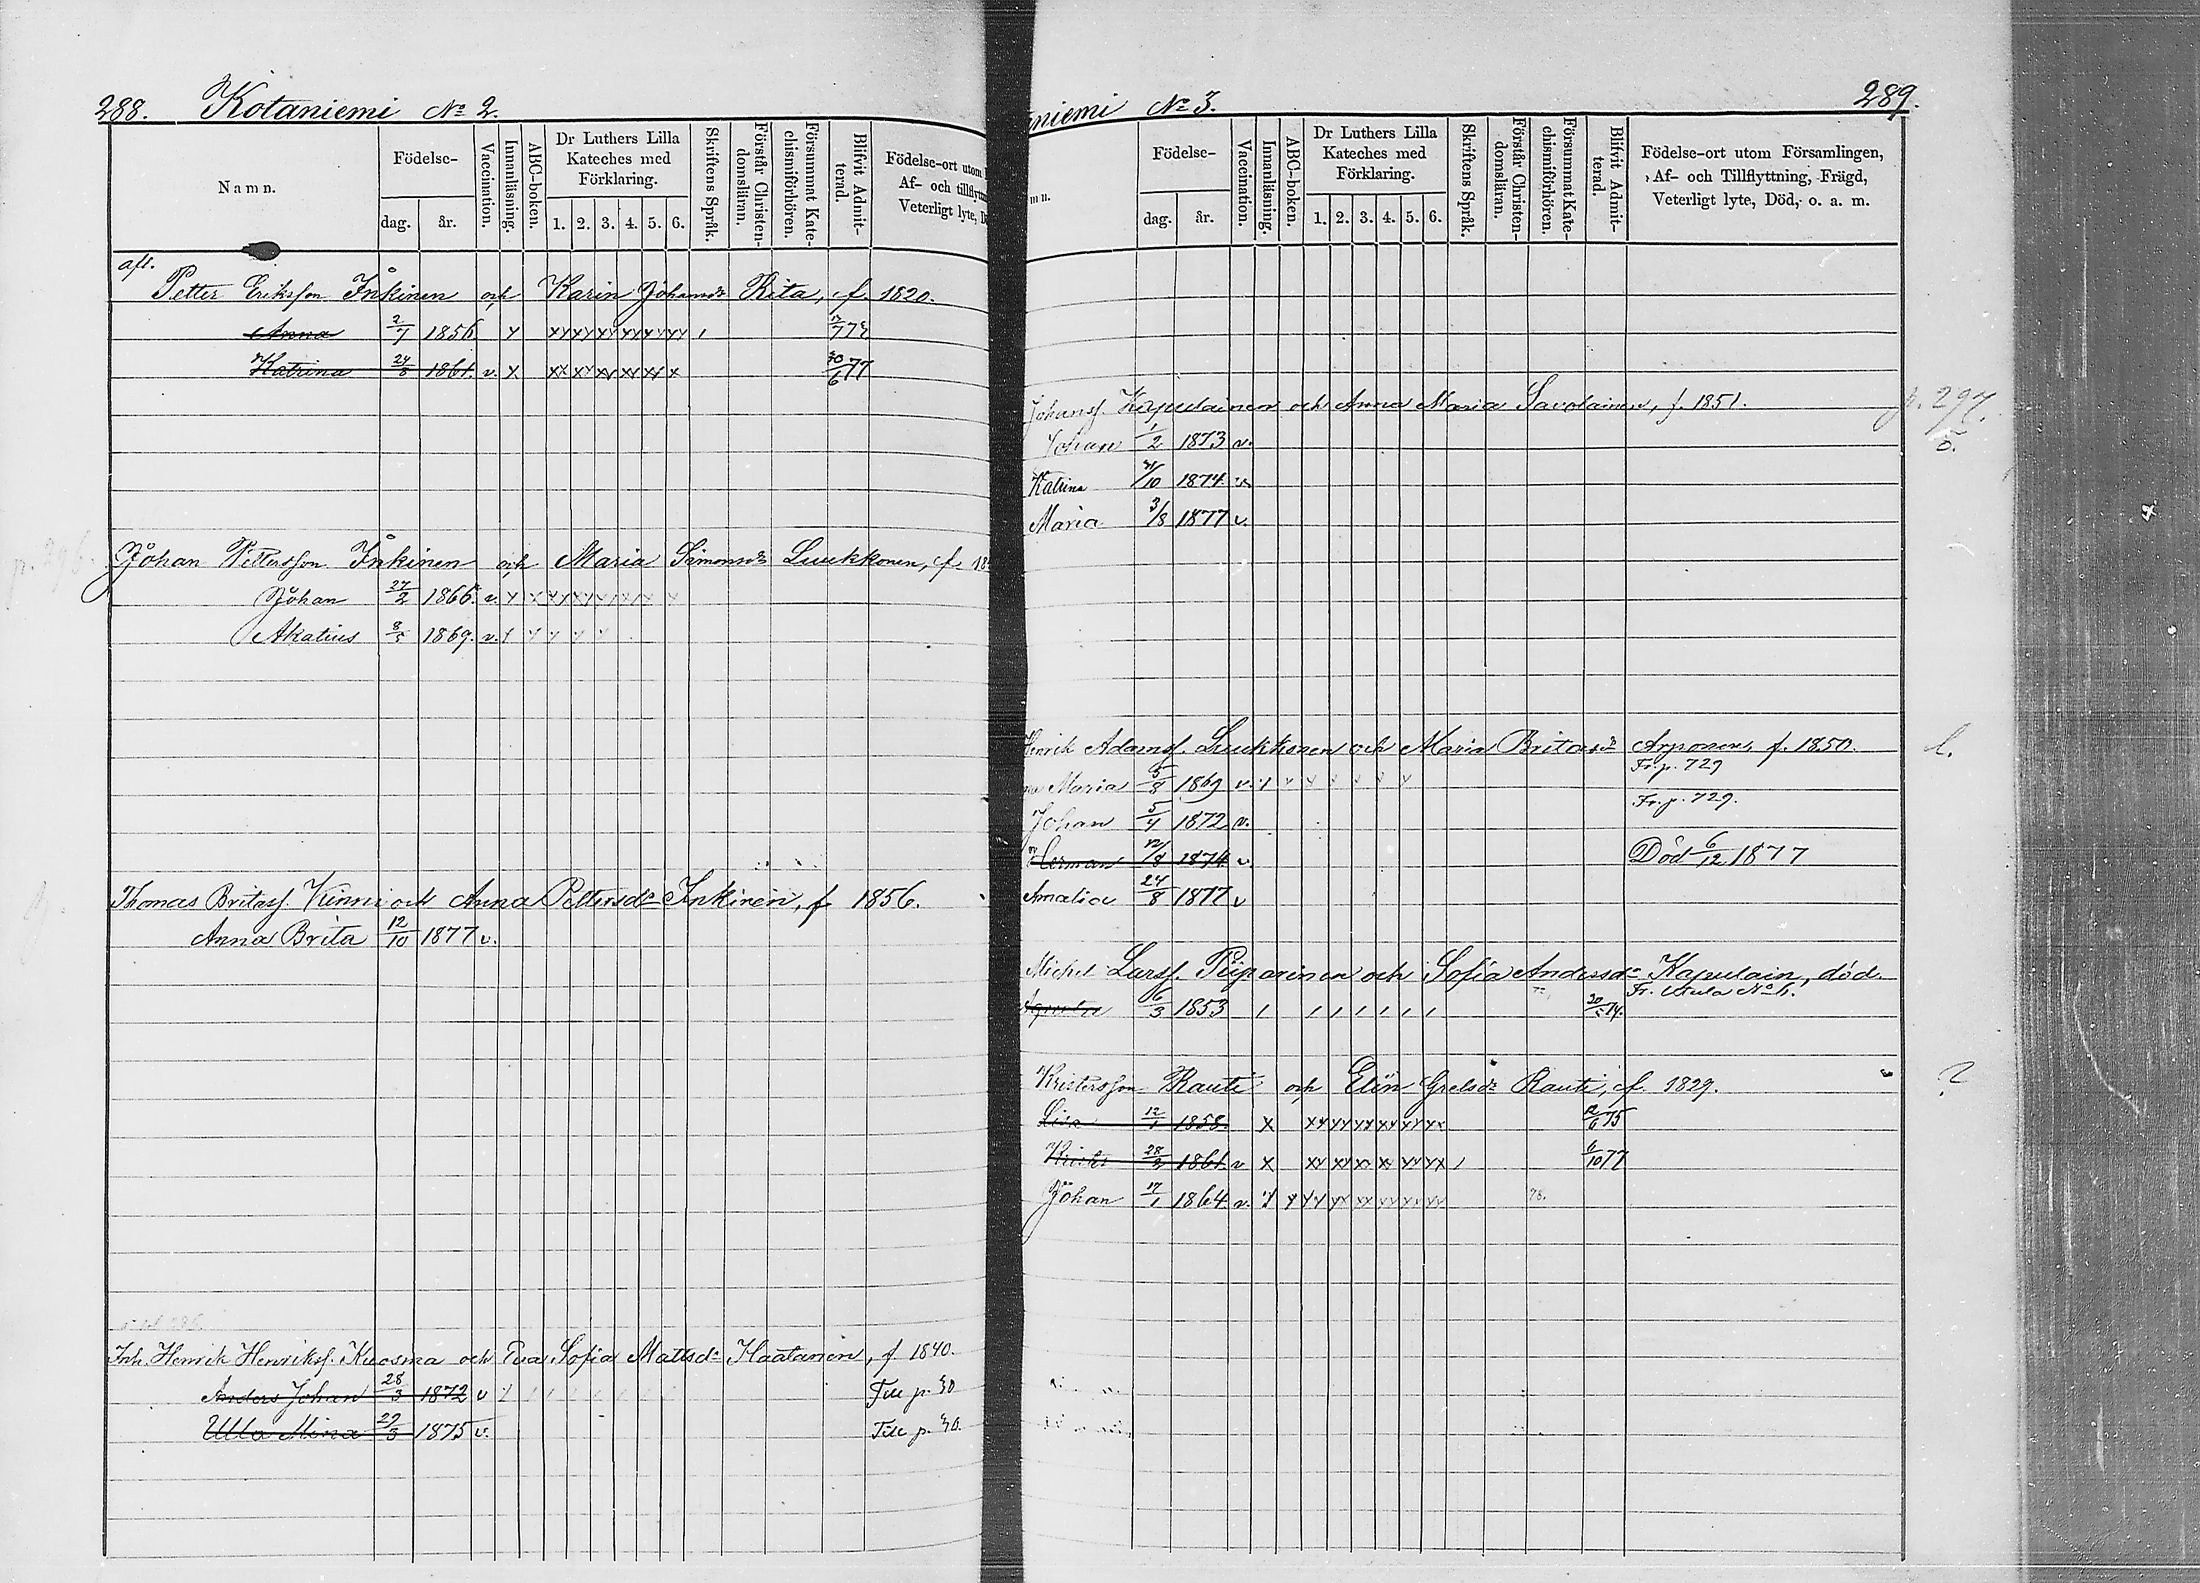 288. Kotaniemi No 2.
Namn.
Födelse-
dag.
år.
Vaccination.
Innanläsning.
ABC-boken.
Dr Luthers Lilla
Kateches med
Förklaring.
1. 2. 3. 4. 5. 6.
Skriftens Språk.
Förstår Christen-
domsläran.
Försummat Kate-
chismiförhören.
Blifvit Admit-
terad.
Födelse-ort utom
Af- och tillflytt
Veterligt lyte, D
afl.
Petter Eriksson Inkinen och Karin Johansdr Rita, f. 1820.
Anna 2/7 1856 x xx xx xx xx xx xx /
Katrina 24/8 1861. v. x xx xx xx xx xx x 30/6 77
Johan Pettersson Inkinen och Maria Simonsdr Luukkonen, f. 18
Johan 27/2 1866. v. x x xx xx xx xx x x
Akatius 8/5 1869. v. x x x x x
Thomas Britasf. Kinni och Anna Pettersdr Inkinen, f. 1856.
Anna Brita 12/10 1877 v.
Inh. Henrik Henriksf. Kuosma och Eva Sofia Mattsdr Haatanen, f. 1840.
Anders Johan 28/3 1872 v Till p. 30
Ulla Mina 29/3 1875 v. Till p. 30.
niemi No 3. 289.
mn.
Födelse-
dag.
år.
Vaccination.
Innanläsning.
ABC-boken.
Dr Luthers Lilla
Kateches med
Förklaring.
1. 2. 3. 4. 5. 6.
Skriftens Språk.
Förstår Christen-
domsläran.
Försummat Kate-
chismiförhören.
Blifvit Admit-
terad.
Födelse-ort utom Församlingen,
Af- och Tillflyttning, Frägd,
Veterligt lyte, Död, o. a. m.
Johansf. Kapulainen och Anna Maria Savolainen, f. 1851. p. 297.
Johan 1/2 1873 v.
Katrina /10 1874 v.
Maria 3/8 1877 v.
Henrik Adamsf. Luukkonen och Maria Britasdr Arponen, f. 1850.
Maria 5/8 1869 v. x x x x x x x Fr. p. 729
Johan 5/4 1872 v. Fr. p. 729.
Herman 12/8 1874 v. Död 6/12 1877
Amalia 24/8 1877 v
Michel Larsf. Piiparinen och Sofia Andersdr Kapulain, död.
6/3 1853 / / / / / / / Fr. Utula No
Kristersson Rauti och Elin Grelsdr Rauti, f. 1829. ?
Lisa 12/1 1858. x xx xx xx xx xx xx 12/6 75
28/2 1861. v x xx xx xx xx xx xx / 6/10 77
Johan 17/1 1864. v. x x xx xx xx xx xx xx 78.